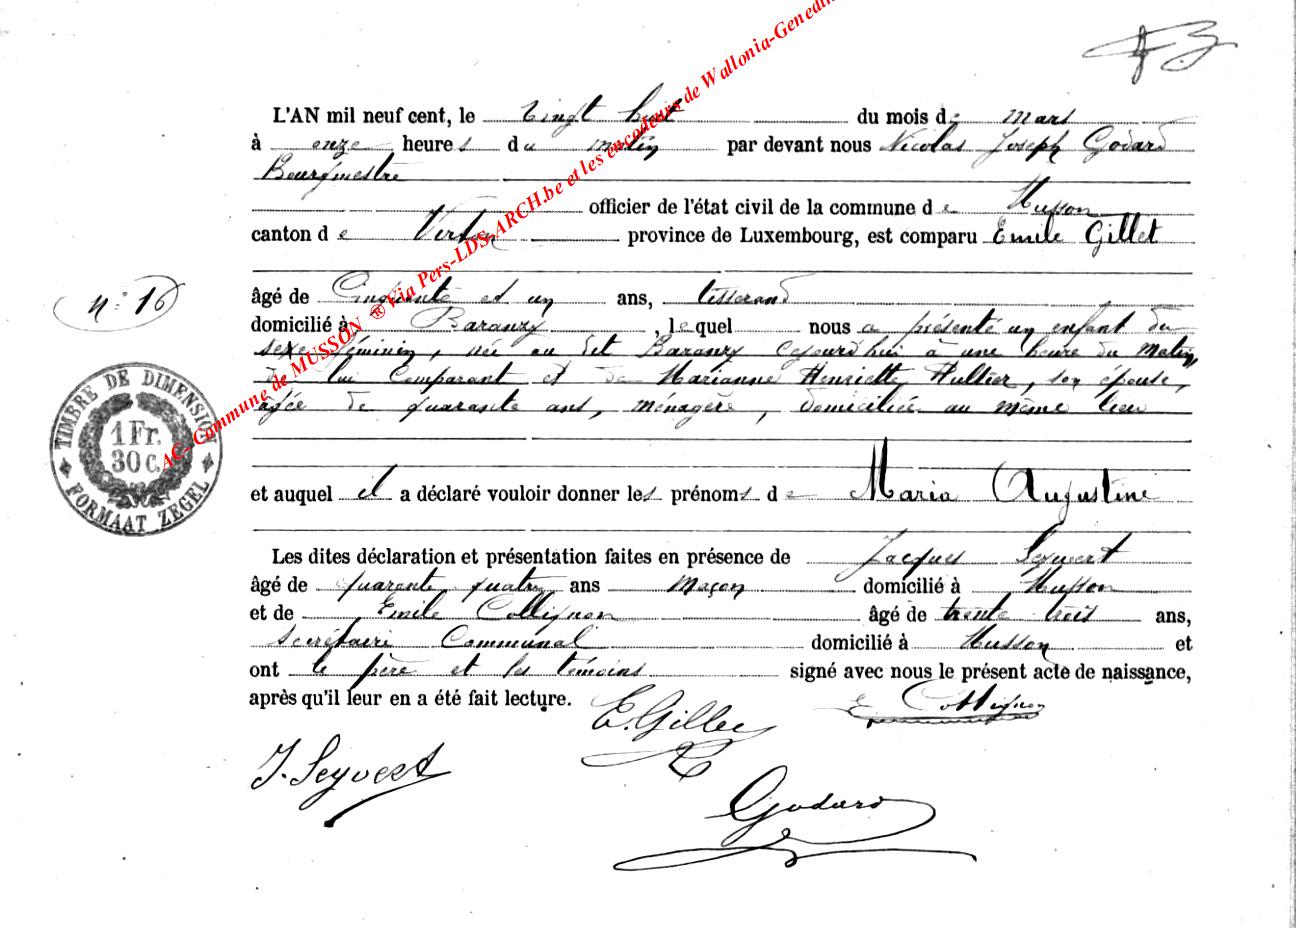 L'AN mil neuf cent, le vingt huit du mois de mars
à onze heures du matin par devant nous Nicolas Joseph Godard
Bourgmestre
officier de l'état civil de la commune de Musson
canton de Virton province de Luxembourg, est comparu Emile Gillet
n° 16
âgé de Cinquante et un ans, tisserand
domicilié à Baranzy, lequel nous a présenté un enfant du
sexe féminin, née au dit Baranzy cejourd'hui à une heure du matin,
de lui Comparant et de Marianne Henriette Hultier, son épouse,
âgée de quarante ans, ménagère, domiciliée au même lieu
et auquel il a déclaré vouloir donner les prénoms de Maria Augustine
Les dites déclaration et présentation faites en présence de Jacques Seyvert
âgé de quarante quatre ans maçon domicilié à Musson
et de Emile Collignon âgé de trente trois ans,
secrétaire Communal domicilié à Musson et
ont le père et les témoins signé avec nous le présent acte de naissance,
après qu'il leur en a été fait lecture.
E. Gillet
E. Collignon
J. Seyvert
Godard
TIMBRE DE DIMENSION
1 Fr.
30 C.
FORMAAT ZEGEL
AC- Commune de MUSSON ® Via Pers-LDS-ARCH.be et les encodeurs de Wallonia-Genedin